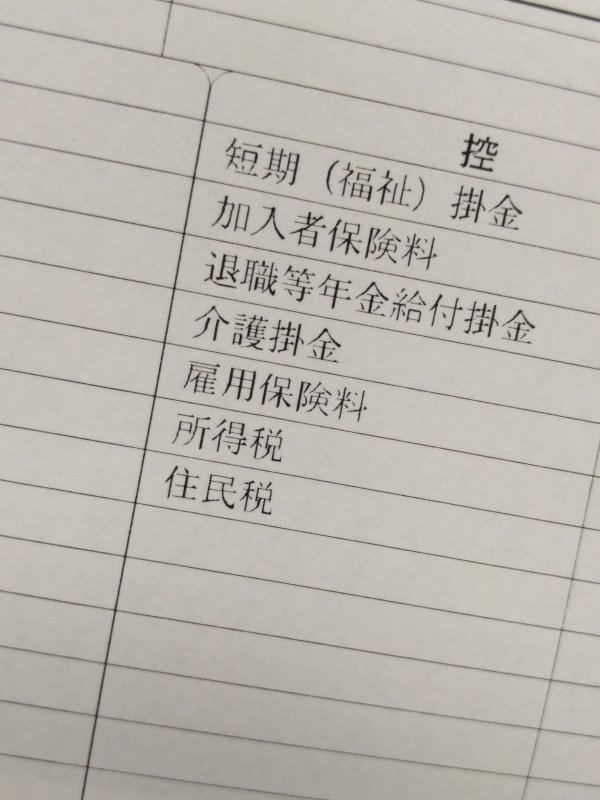 控
短期（福祉）掛金
加入者保険料
退職等年金給付掛金
介護掛金
雇用保険料
所得税
住民税